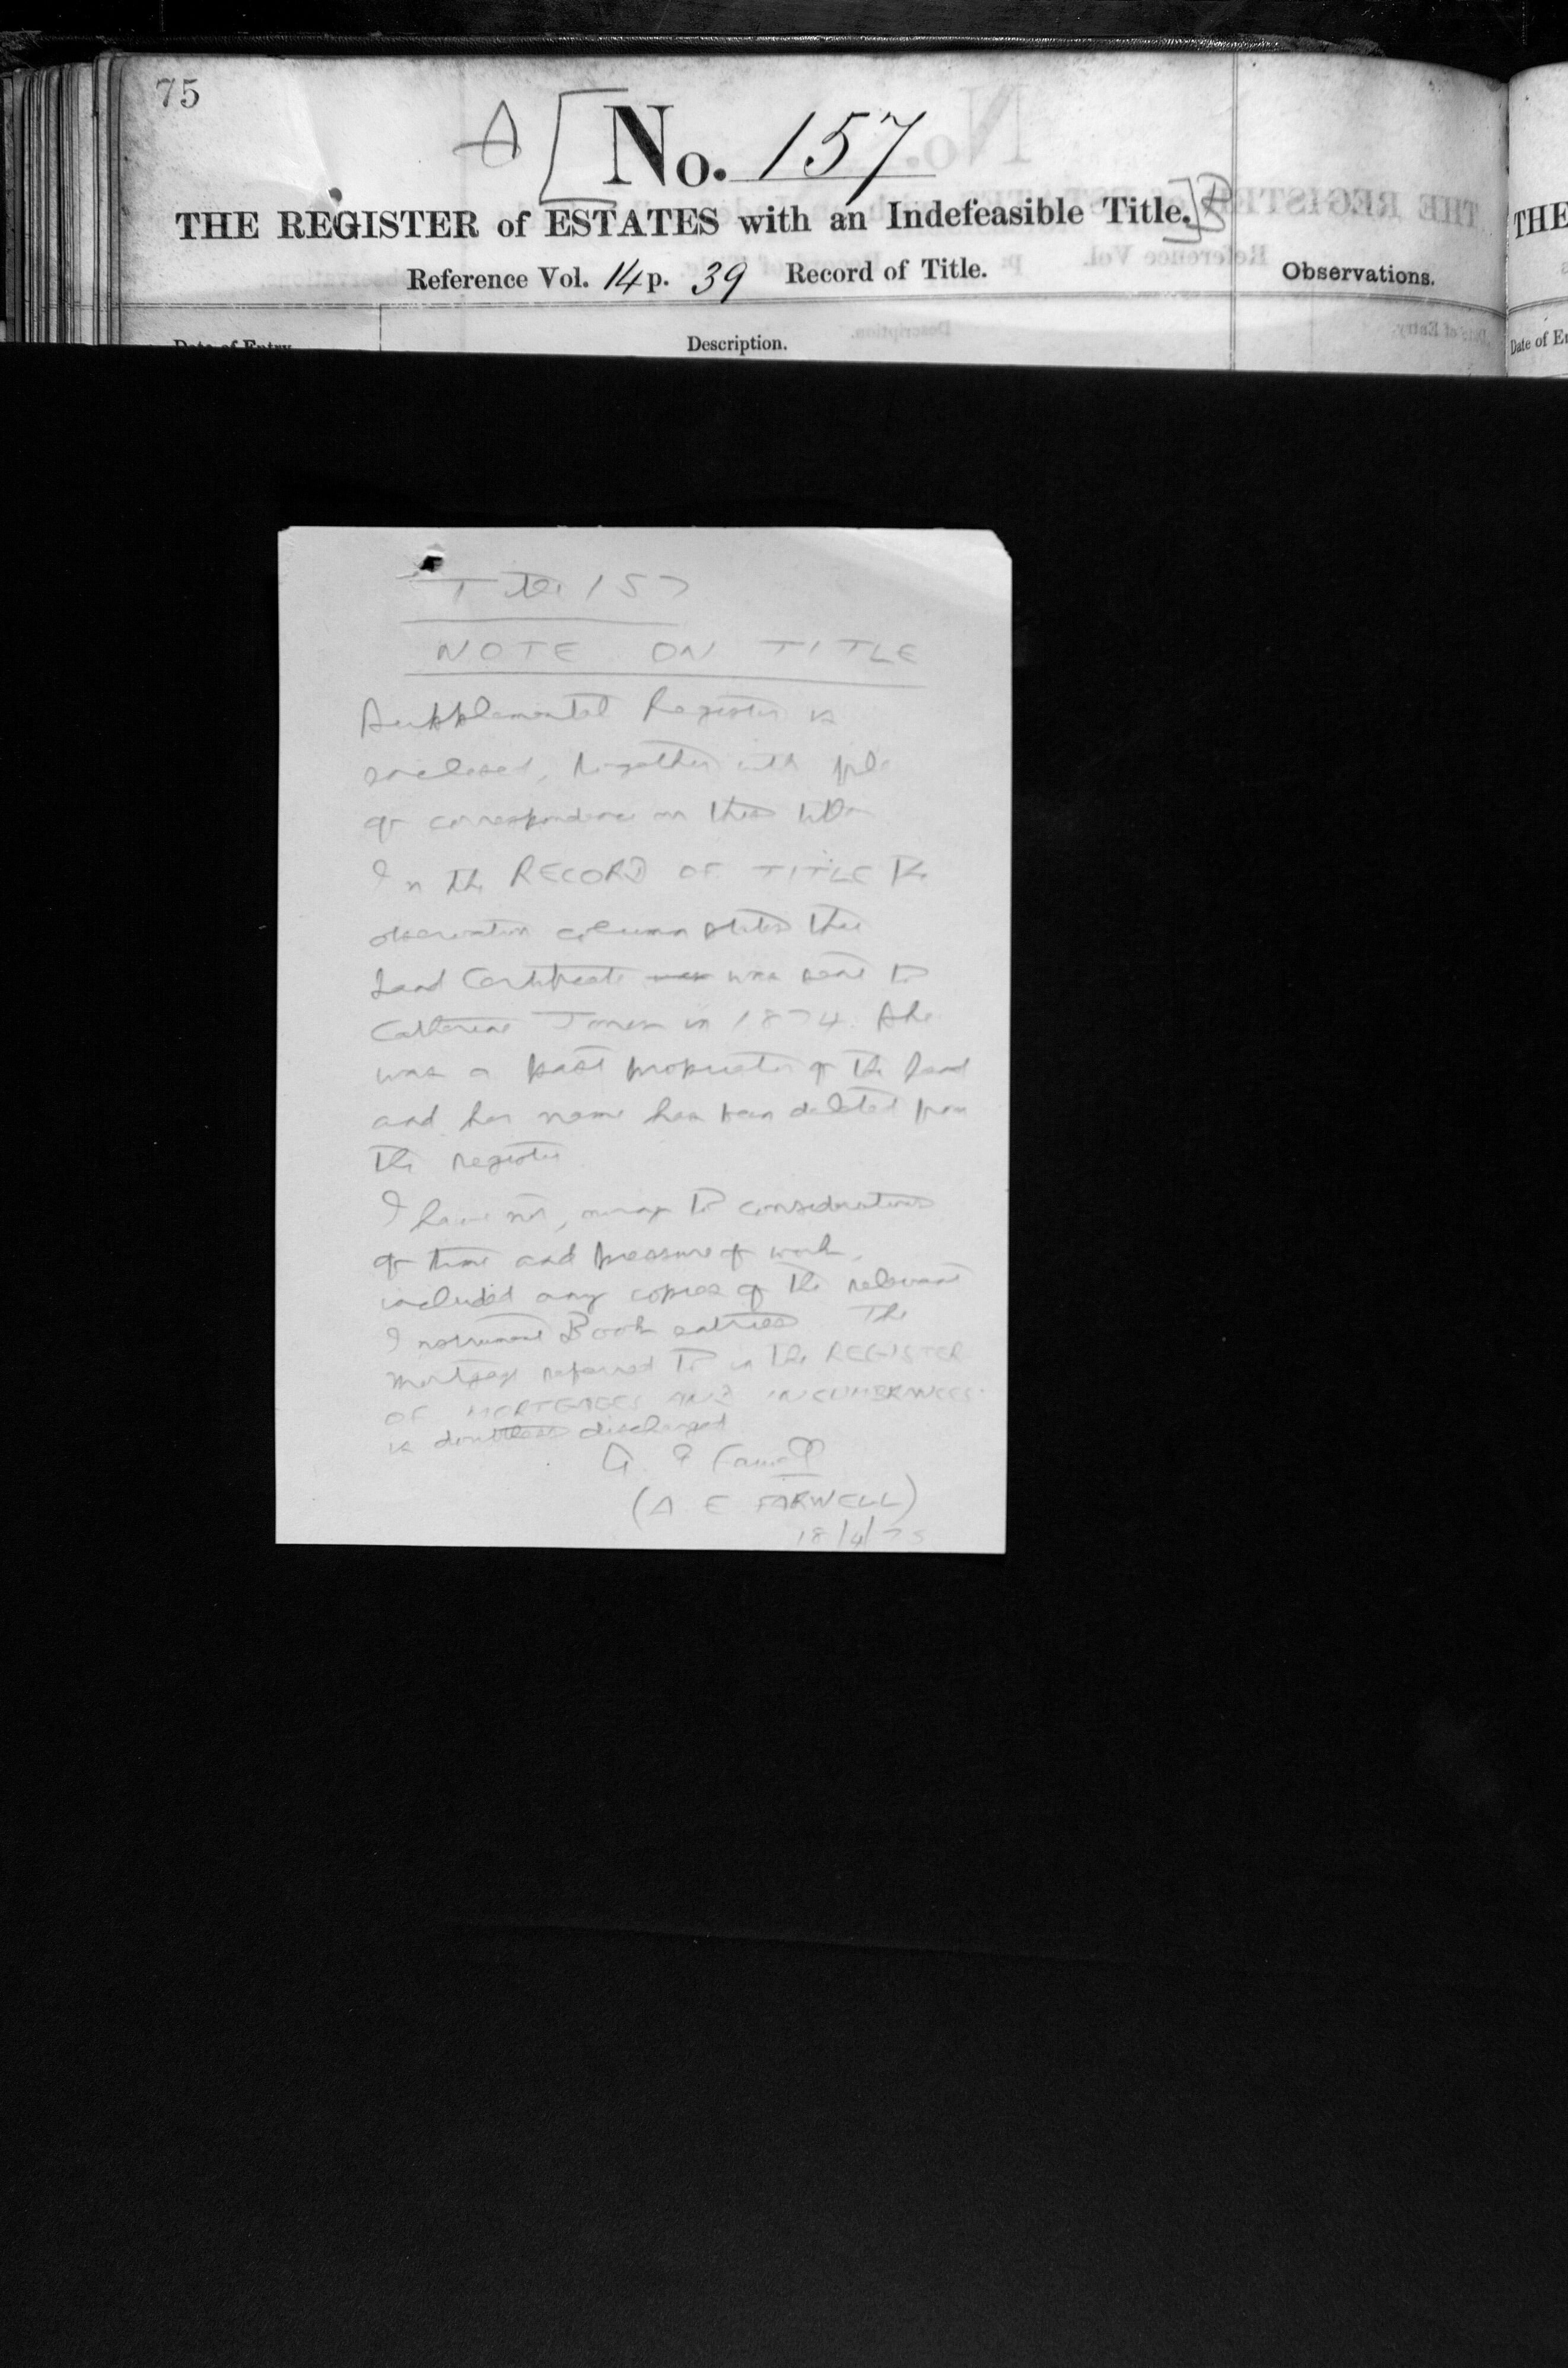 75
A [No. 157
THE REGISTER of ESTATES with an Indefeasible Title.]
Reference Vol. 14 p. 39 Record of Title.
Observations.
Date of Entry
Description.
THE
Date of En
Title 157
NOTE ON TITLE
Supplemental Register is
enclosed, together with file
of correspondence on this title
In the RECORD OF TITLE the
observation column states the
Land Certificate was was sent to
Catherine Jones in 1874. She
was a past proprietor of the land
and her name has been deleted from
the register
I have not, owing to considerations
of time and pressure of work,
included any copies of the relevant
Instrument Book entries The
mortgage referred to in the REGISTER
OF MORTGAGES AND INCUMBRANCES
is doubtless discharged
A E Farwell
(A E FARWELL)
18/4/75